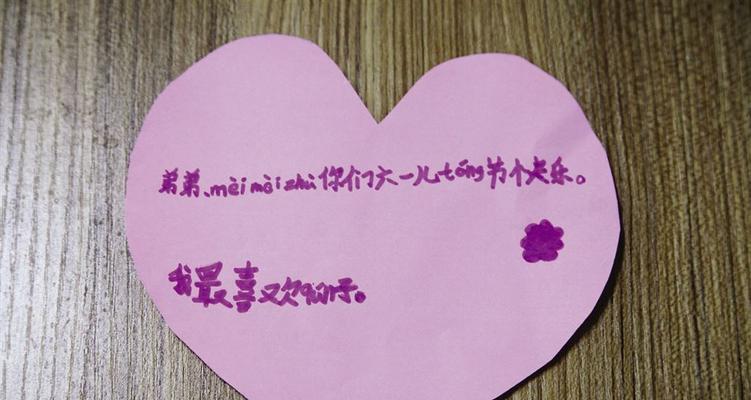 弟弟、mèimèizhù你们六一儿tóng节个乐。
我最喜欢你们。